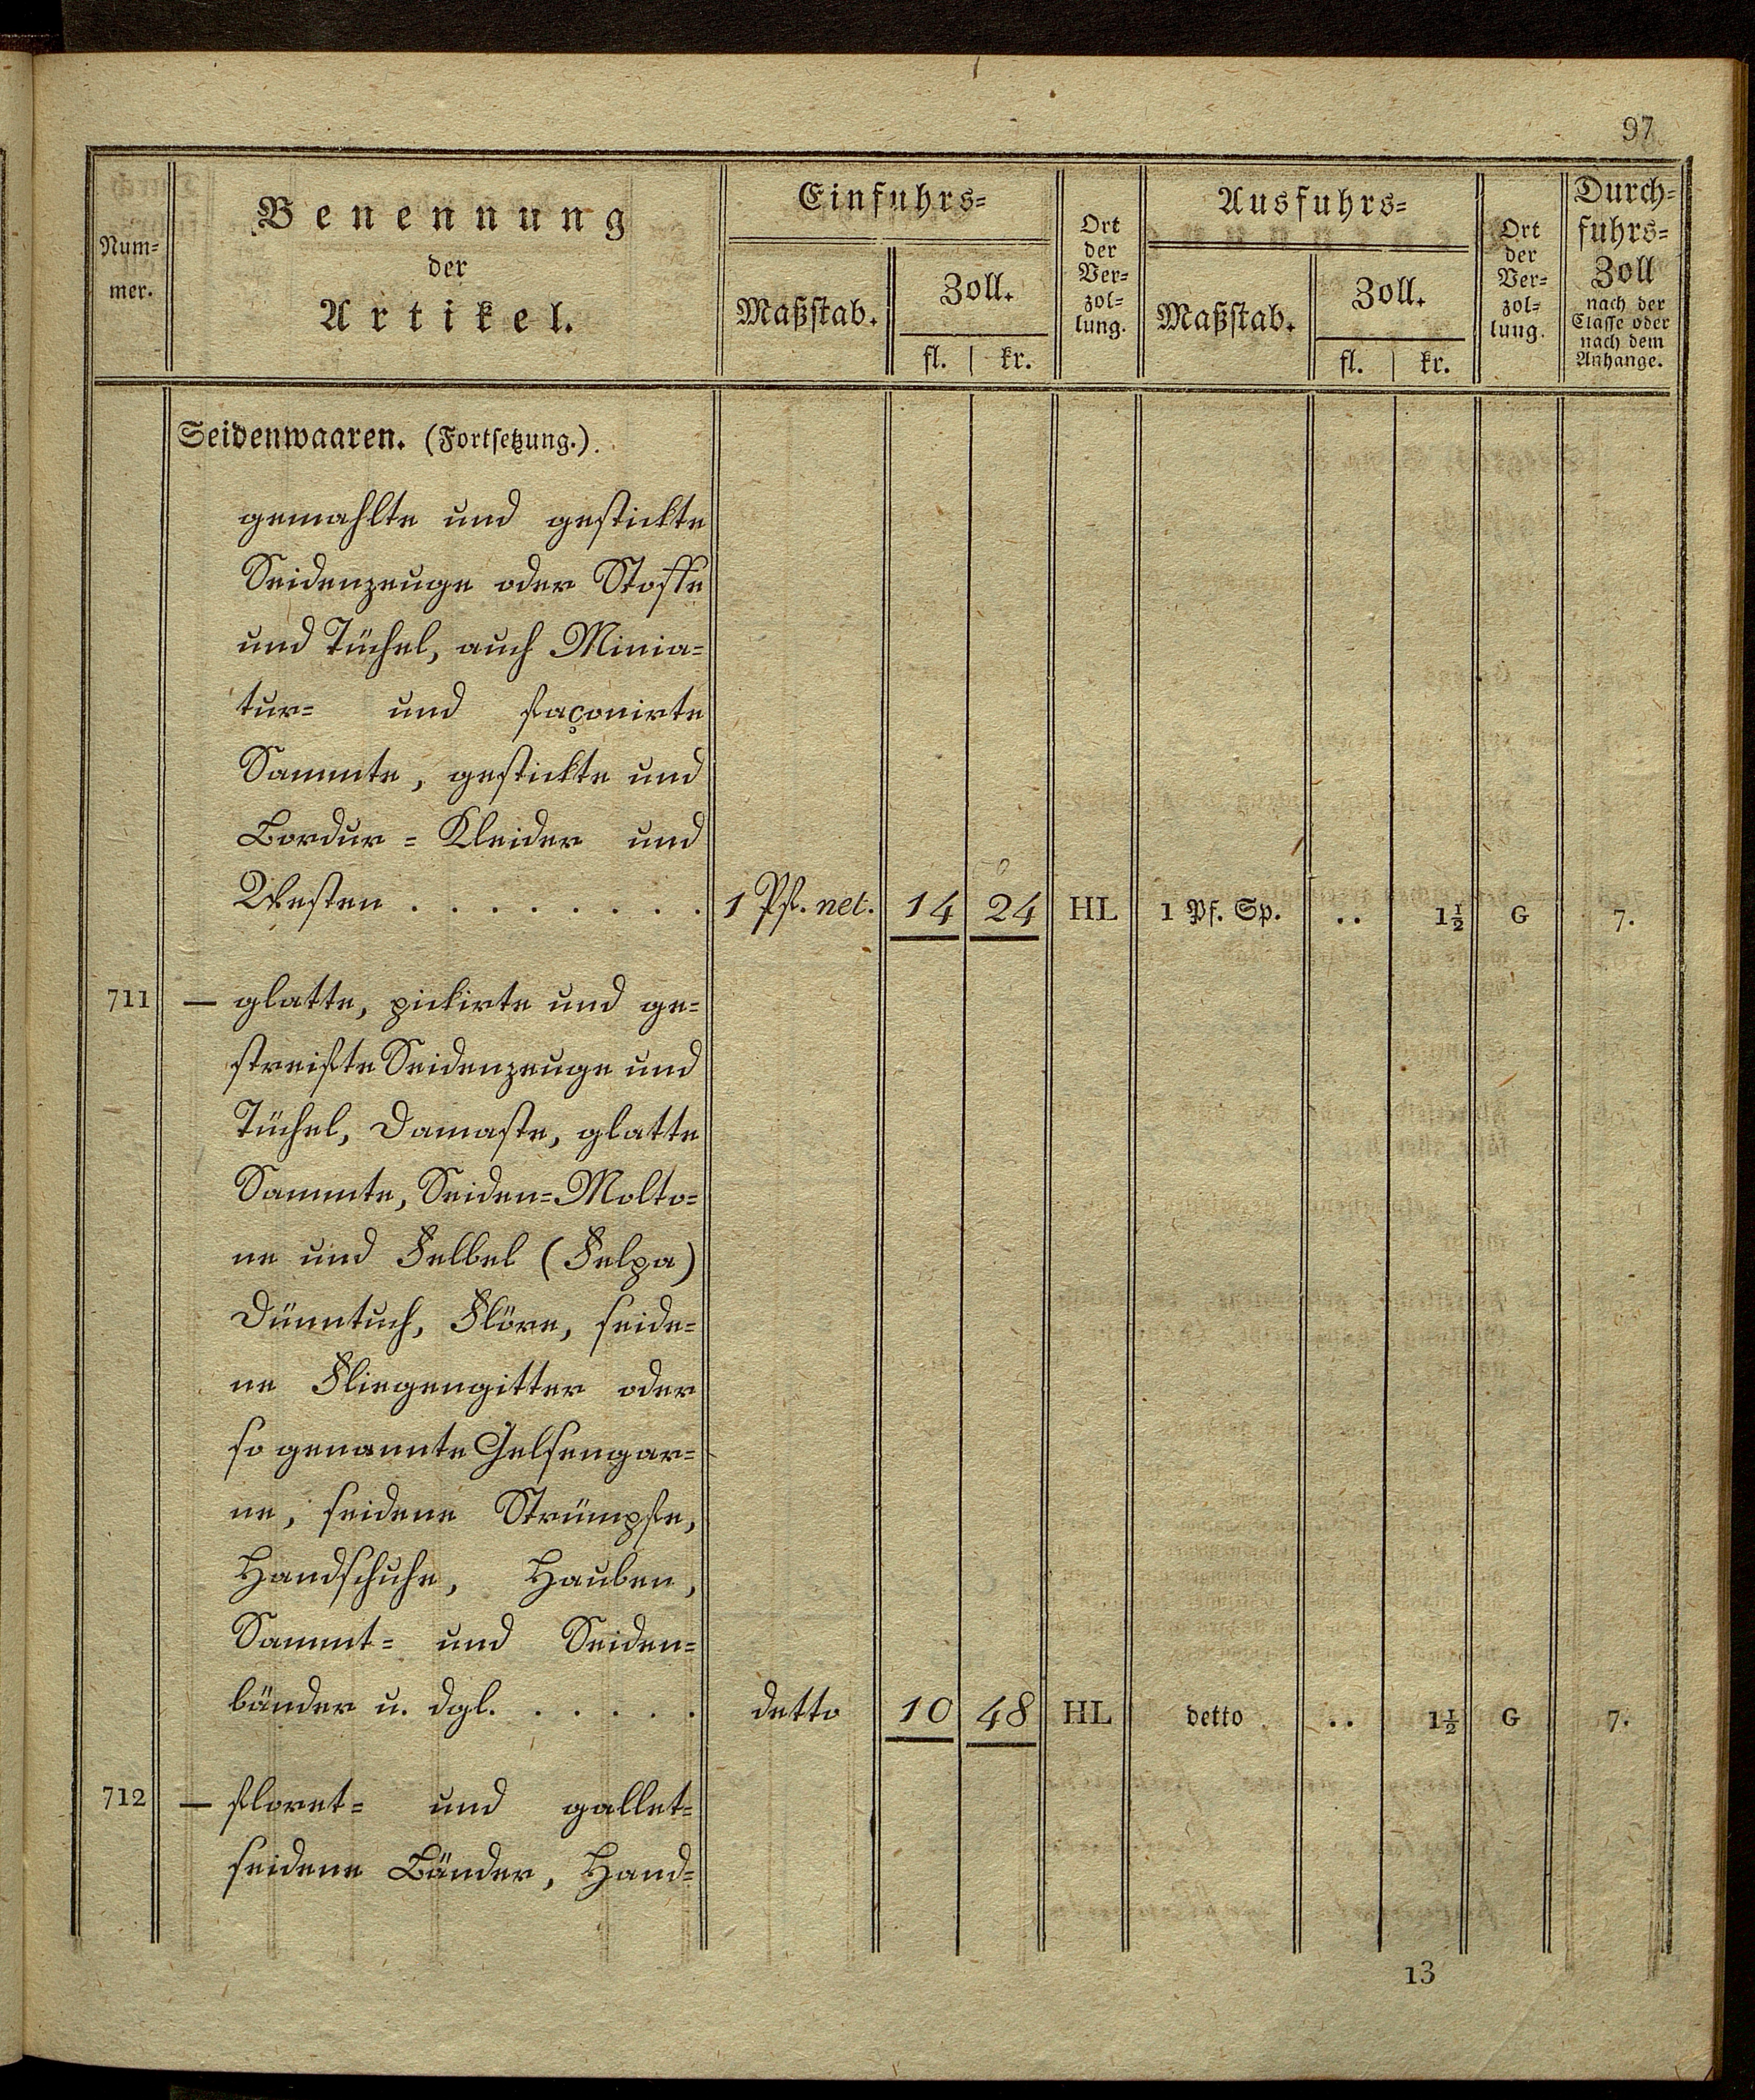 97
Num-
mer.
Benennung
der
Artikel.
Einfuhrs-
Maßstab.
Zoll.
fl. | kr.
Ort
der
Ver-
zol-
lung.
Ausfuhrs-
Maßstab.
Zoll.
fl. | kr.
Ort
der
Ver-
zol-
lung.
Durch-
fuhrs-
Zoll
nach der
Classe oder
nach dem
Anhange.
Seidenwaaren. (Fortsetzung.).
gemahlte und gestickte
Seidenzeuge oder Stoffe
und Tüchel, auch Minia-
tur- und façonirte
Sammte, gestickte und
Bordur-Kleider und
Westen . . . . . . . . 1 Pf. net. 14 24 HL 1 Pf. Sp. .. 1½ G 7.
711 — glatte, pickirte und ge-
streifte Seidenzeuge und
Tüchel, Damaste, glatte
Sammte, Seiden-Molto-
ne und Felbel (Felpa)
Dünntuch, Flöre, seide-
ne Fliegengitter oder
so genannte Gelsengar-
ne, seidene Strümpfe,
Handschuhe, Hauben,
Sammt- und Seiden-
bänder u. dgl. . . . . . detto 10 48 HL detto .. 1½ G 7.
712 — floret- und gallet-
seidene Bänder, Hand-
13